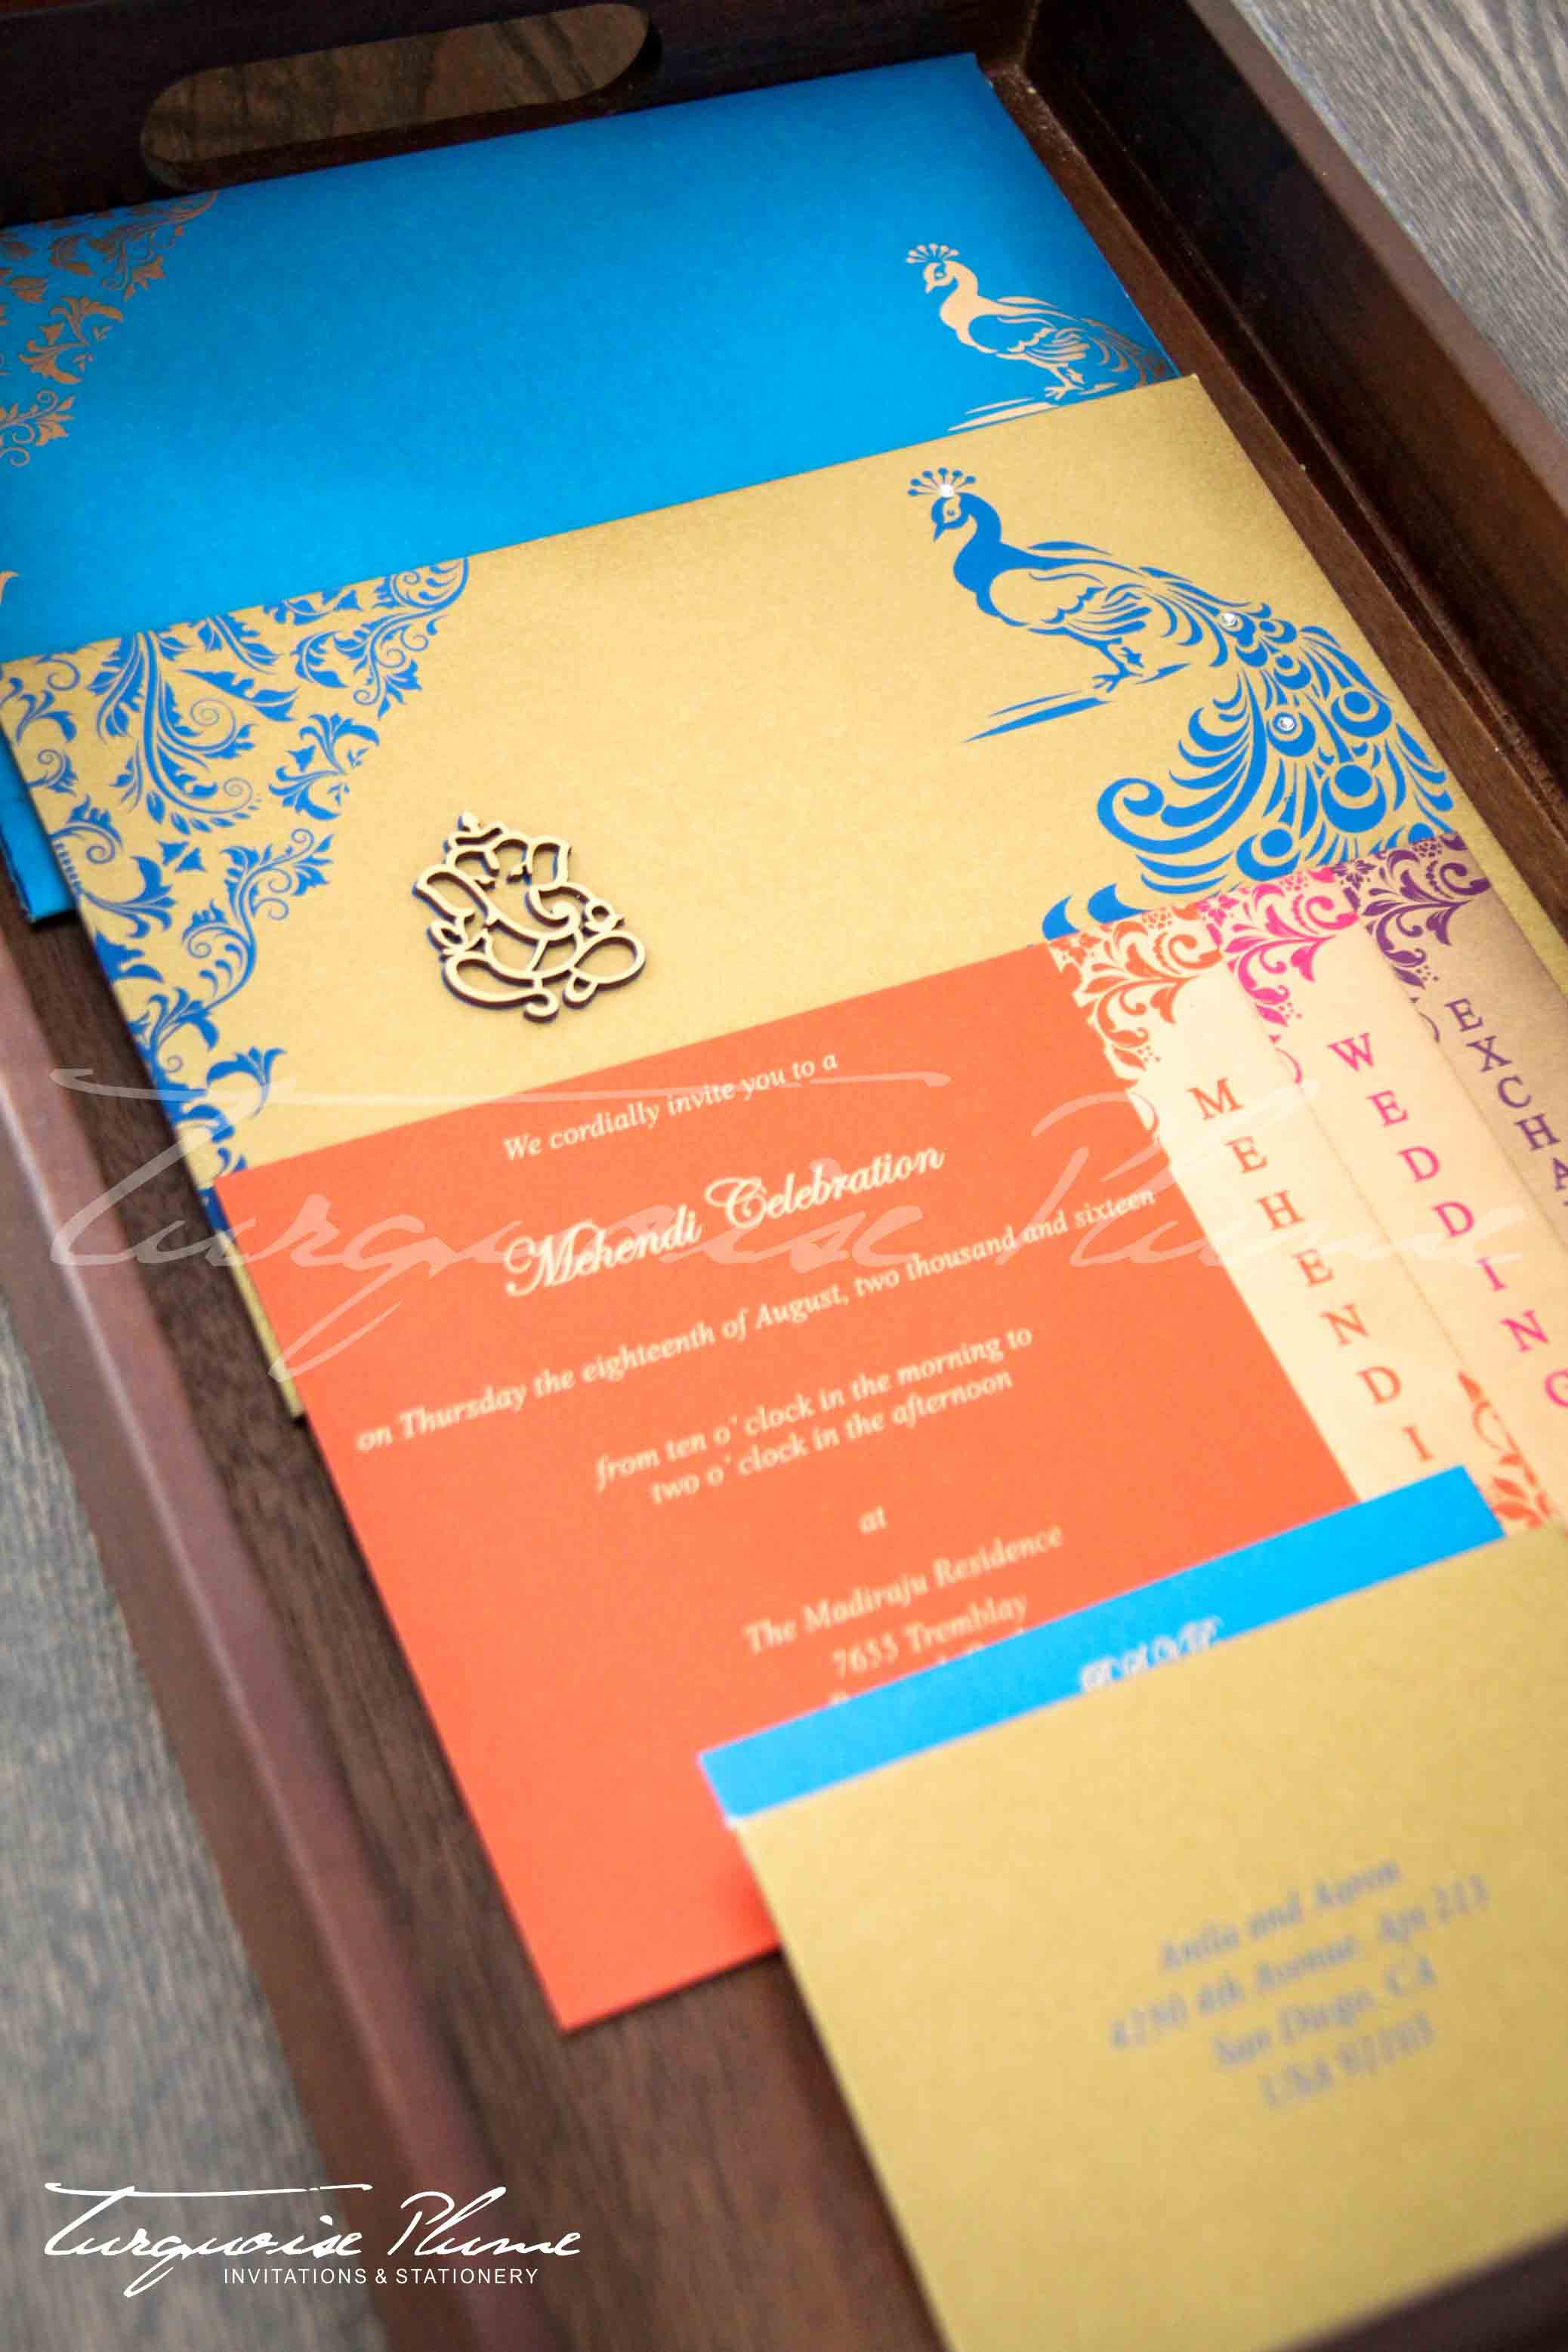 We cordially invite you to a
Mehendi Celebration
on Thursday the eighteenth of August, two thousand and sixteen
from ten o' clock in the morning to
two o' clock in the afternoon
at
The Madiraju Residence
7655 Tremblay
MEHENDI
WEDDING
EXCHA
and Aaron
4250 4th Avenue, Apt 213
San Diego, CA
USA 92103
Turquoise Plume
Turquoise Plume
INVITATIONS & STATIONERY